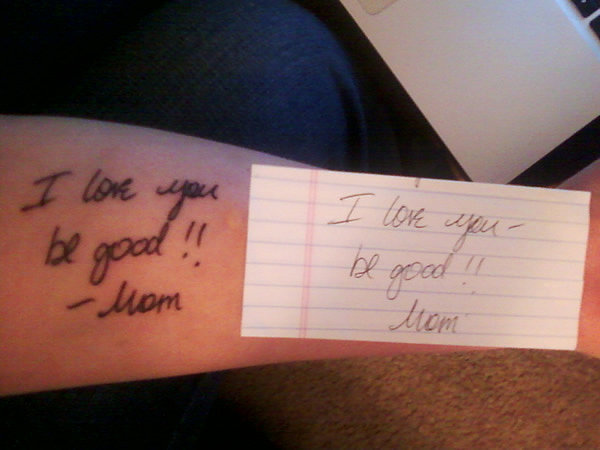 I love you
be good!!
- Mom
I love you -
be good!!
Mom